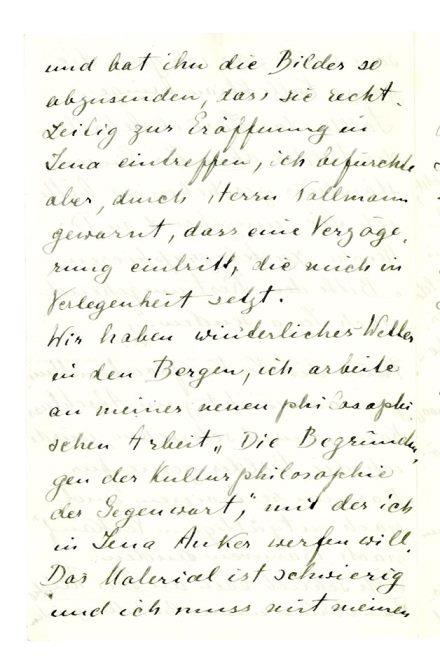 und bat ihn die Bilder so
abzusenden, dass sie recht-
zeitig zur Eröffnung in
Jena eintreffen, ich befürchte
aber, durch Herrn
gewarnt, dass eine Verzöge-
rung eintritt, die mich in
Verlegenheit setzt.
Wir haben winterliches Wetter
in den Bergen, ich arbeite
an meiner neuen philosophi
schen Arbeit „Die Begründun-
gen der Kulturphilosophie
der Gegenwart," mit der ich
in Jena Anker werfen will.
Das Material ist schwierig
und ich muss mit meinen